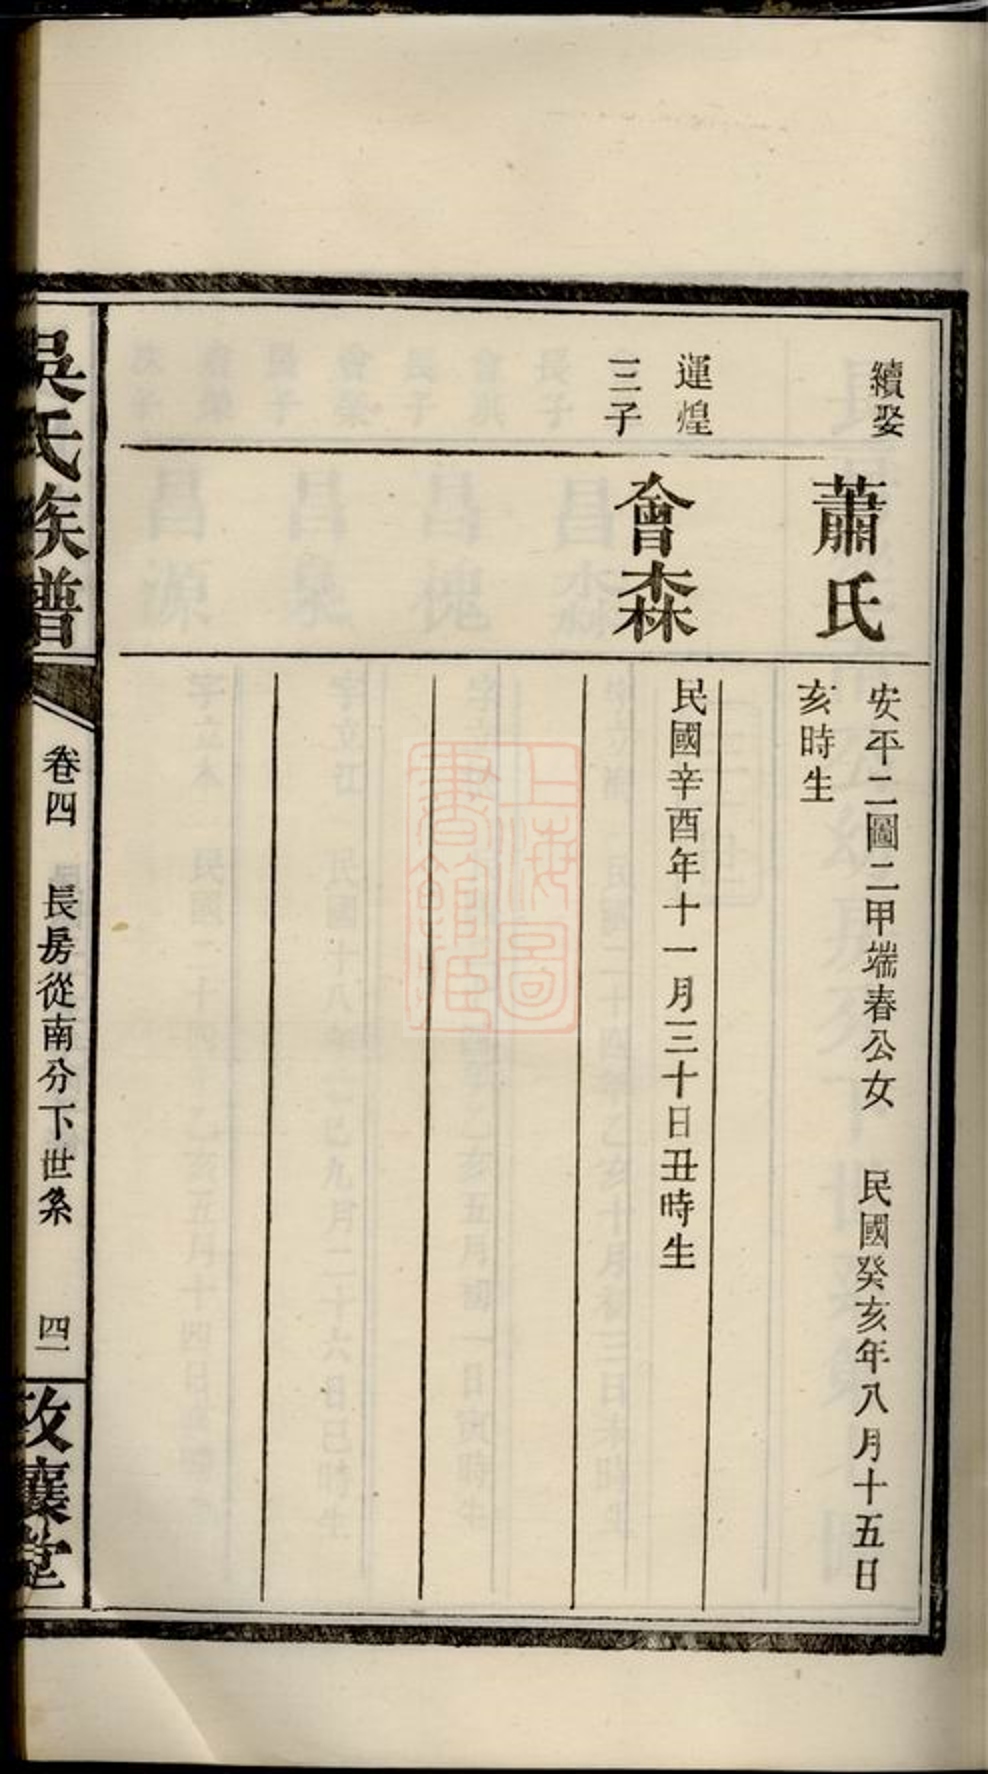 續娶
蕭氏
安平二圖二甲端春公女 民國癸亥年八月十五日
亥時生
運煌
三子
會森
民國辛酉年十一月三十日丑時生
吳氏族譜
卷四 長房從南分下世系 四一
敦讓堂
上海圖
書館藏